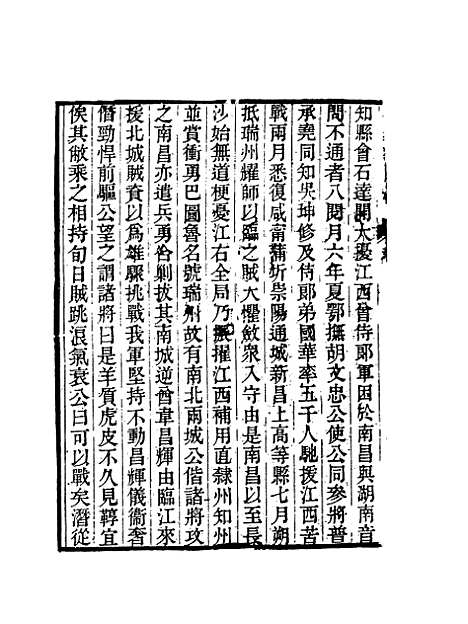 知縣會石達開大擾江西曾侍郞軍困於南昌與湖南音
問不通者八閱月六年夏鄂撫胡文忠公使公同參將普
承堯同知吳坤修及侍郞弟國華率五千人馳援江西苦
戰兩月悉復咸甯蒲圻崇陽通城新昌上高等縣七月朔
抵瑞州耀師以臨之賊大懼斂衆入守由是南昌以至長
沙始無道梗憂江右全局乃振擢江西補用直隸州知州
並賞衝勇巴圖魯名號瑞州故有南北兩城公偕諸將攻
之南昌亦遣兵勇合剿拔其南城逆酋韋昌輝由臨江來
援北城賊資以爲雄驟挑戰我軍堅持不動昌輝儀衞奢
僭勁悍前驅公望之謂諸將曰是羊質虎皮不久見鞟宜
俟其敝乘之相持旬日賊跳浪氣衰公曰可以戰矣潛從